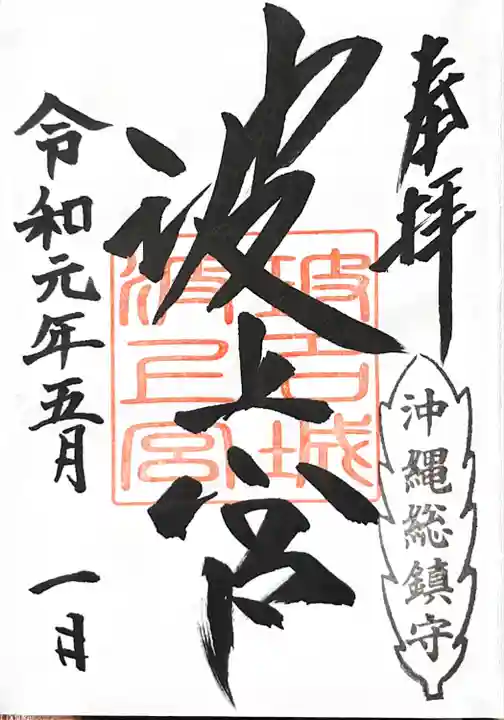 奉拝
沖縄総鎮守
波上宮
波上宮
令和元年五月一日